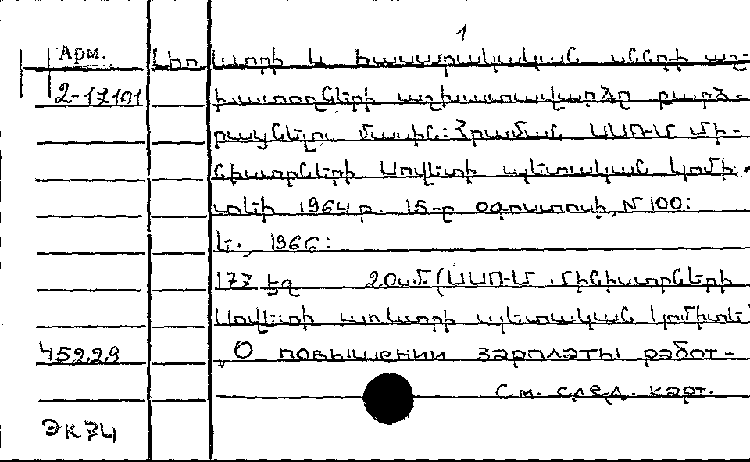 1
Арм. Առևտրի և հասարակական սննդի աշ-
2-17101 խատողների աշխատավարձը բարձ-
րացնելու մասին: Հրաման ՍՍՌՄ Մի-
նիստրների Սովետի պետական կոմի-
տեի 1964թ. 15-ը օգոստոսի, N 100:
Ե., 1966:
177 էջ 20սմ (ՍՍՌՄ Մինիստրների
Սովետի առևտրի պետական կոմիտե
45229 "О повышении зарплаты работ-
См. след. карт.
ЭК74